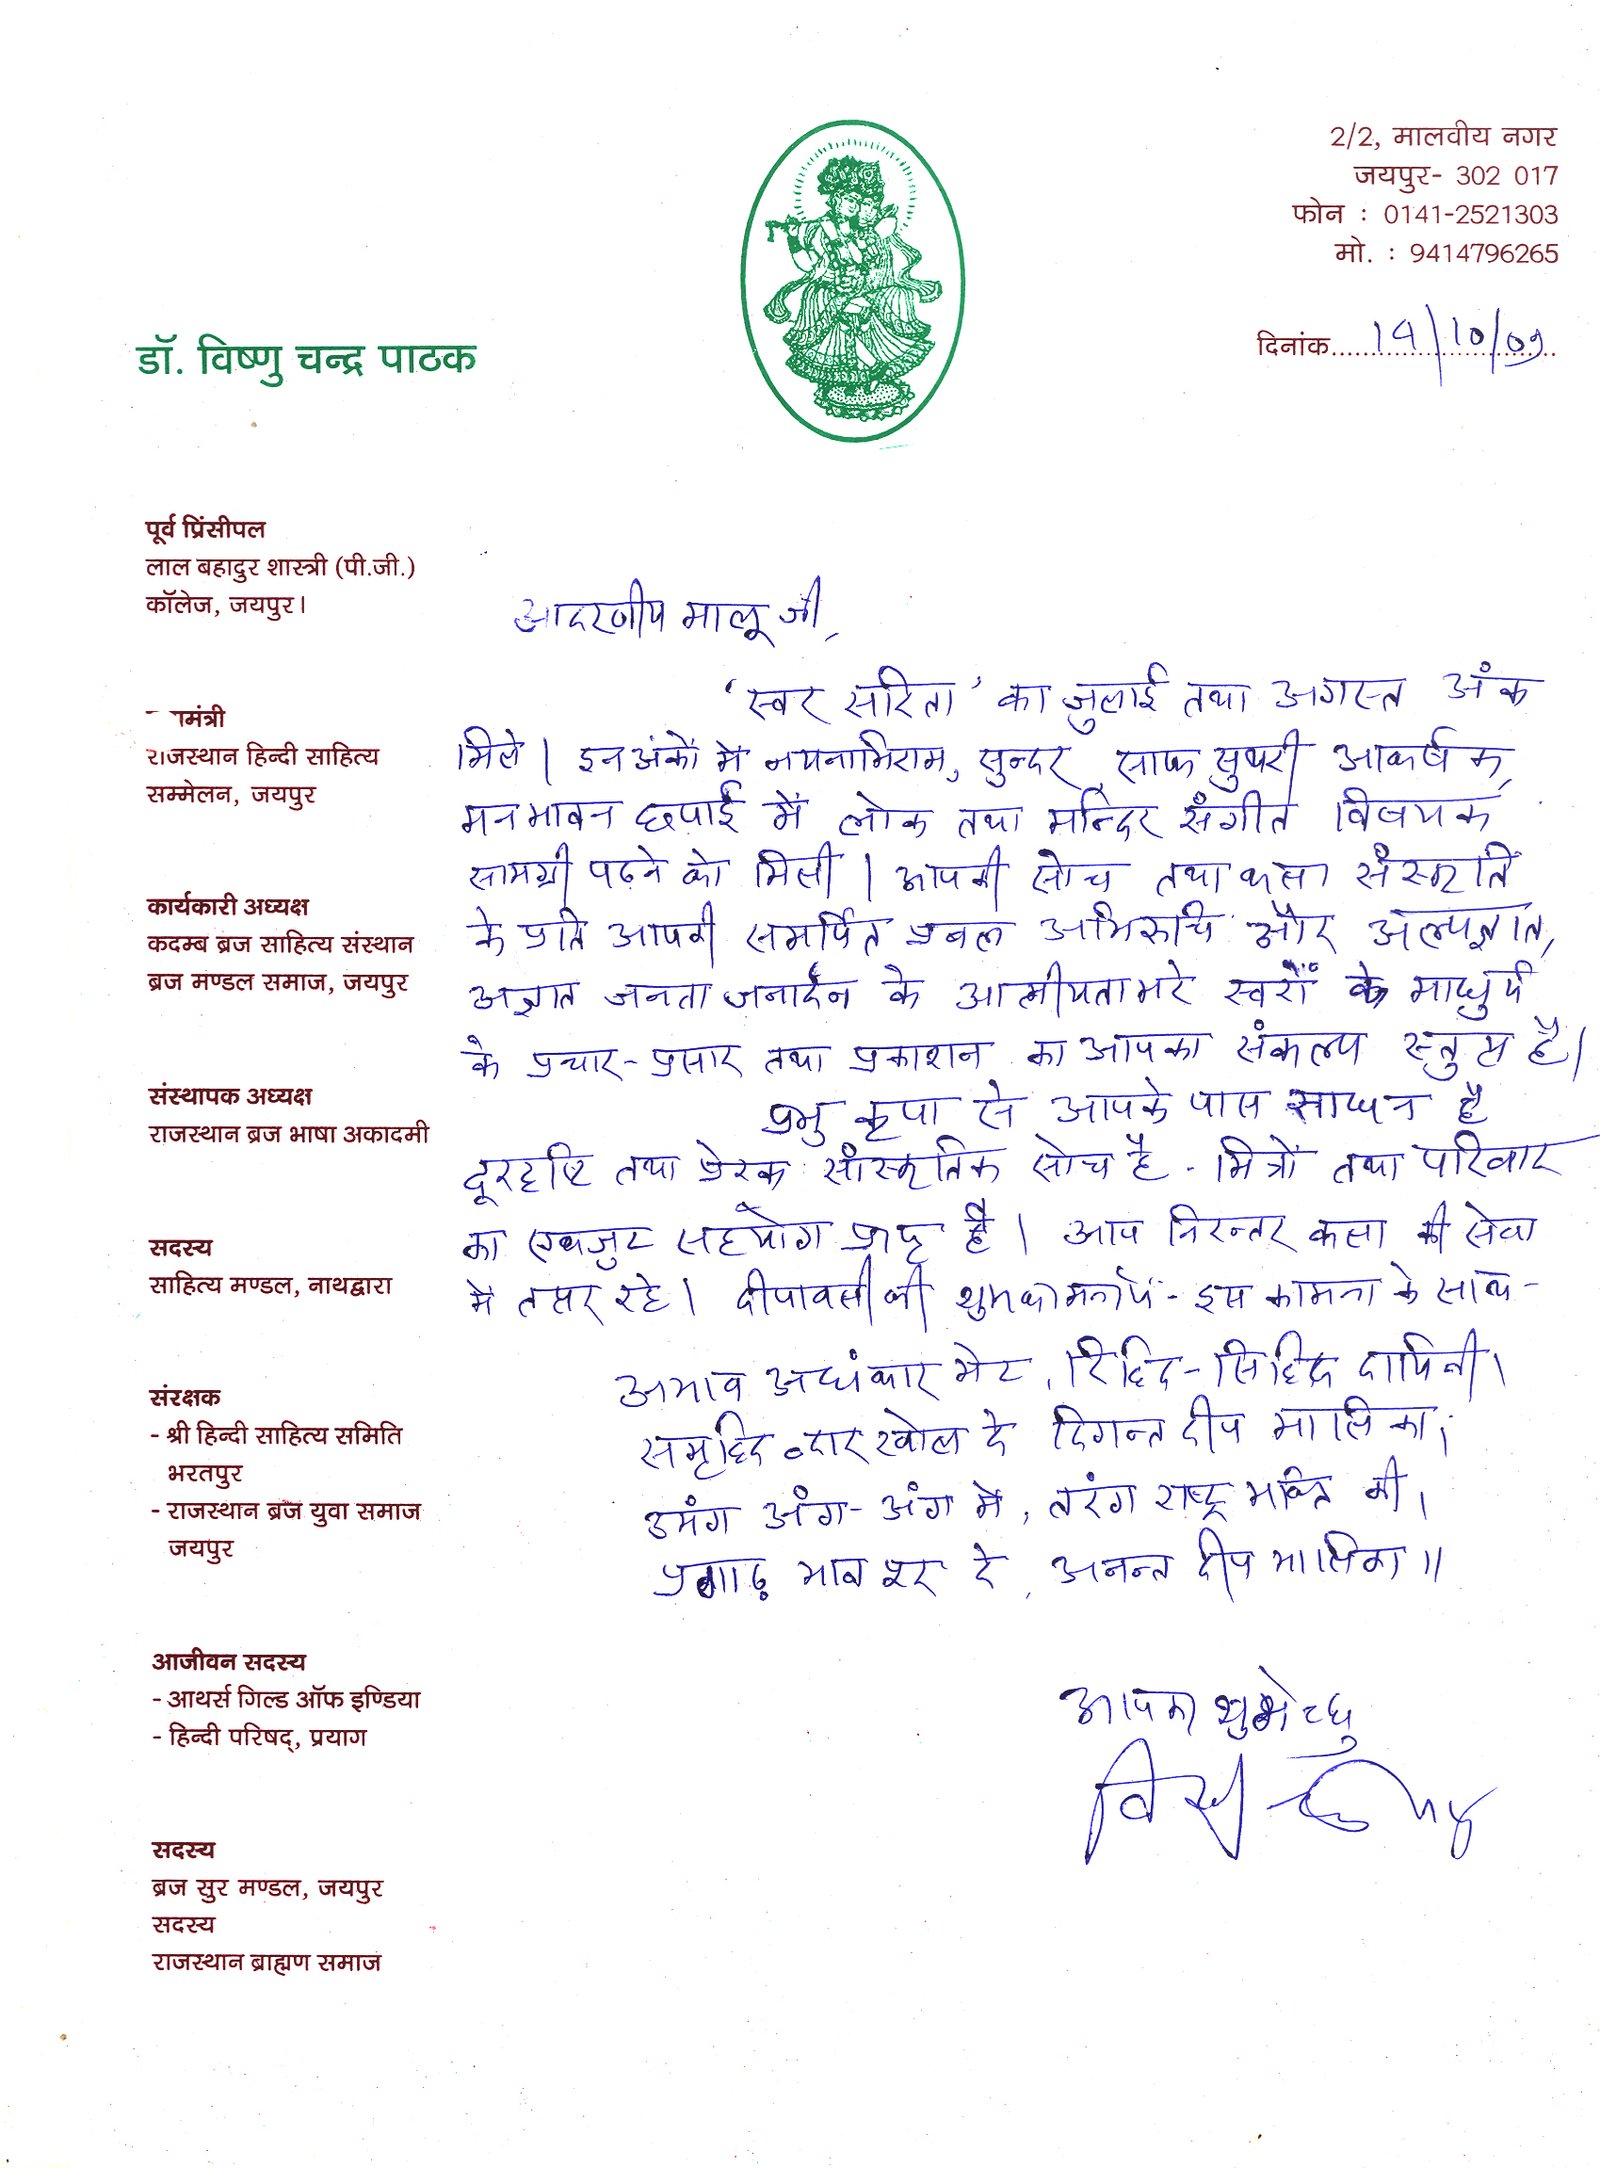 2/2, मालवीय नगर
जयपुर- 302 017
फोन : 0141-2521303
मो. : 9414796265
डॉ. विष्णु चन्द्र पाठक
दिनांक 14/10/09
पूर्व प्रिंसीपल
लाल बहादुर शास्त्री (पी.जी.)
कॉलेज, जयपुर।
मंत्री
राजस्थान हिन्दी साहित्य
सम्मेलन, जयपुर
कार्यकारी अध्यक्ष
कदम्ब ब्रज साहित्य संस्थान
ब्रज मण्डल समाज, जयपुर
संस्थापक अध्यक्ष
राजस्थान ब्रज भाषा अकादमी
सदस्य
साहित्य मण्डल, नाथद्वारा
संरक्षक
- श्री हिन्दी साहित्य समिति
भरतपुर
- राजस्थान ब्रज युवा समाज
जयपुर
आजीवन सदस्य
- आथर्स गिल्ड ऑफ इण्डिया
- हिन्दी परिषद्, प्रयाग
सदस्य
ब्रज सुर मण्डल, जयपुर
सदस्य
राजस्थान ब्राह्मण समाज
आदरणीय मालू जी,
'स्वर सरिता' का जुलाई तथा अगस्त अंक
मिले। इन अंकों में नयनाभिराम, सुन्दर, साफ सुथरी आकर्षक,
मनभावन छपाई में लोक तथा मन्दिर संगीत विषयक
सामग्री पढ़ने को मिली। आपकी सोच तथा कला संस्कृति
के प्रति आपकी समर्पित प्रबल अभिरुचि और अल्पज्ञात,
अज्ञात जनता जनार्दन के आत्मीयता भरे स्वरों के माधुर्य
के प्रचार-प्रसार तथा प्रकाशन का आपका संकल्प स्तुत्य है।
प्रभु कृपा से आपके पास साधन है
दूरदृष्टि तथा प्रेरक सांस्कृतिक सोच है - मित्रों तथा परिवार
का एकजुट सहयोग प्राप्त है। आप निरन्तर कला की सेवा
में तत्पर रहे। दीपावली की शुभकामनायें - इस कामना के साथ -
अभाव अधंकार मेट, रिद्धि-सिद्धि दायिनी।
समृद्धि द्वार खोल दे दिगन्त दीप मालिका।
उमंग अंग-अंग में, तरंग राष्ट्र भक्ति की।
प्रगाढ़ भाव भर दे, अनन्त दीप मालिका॥
आपका शुभेच्छु